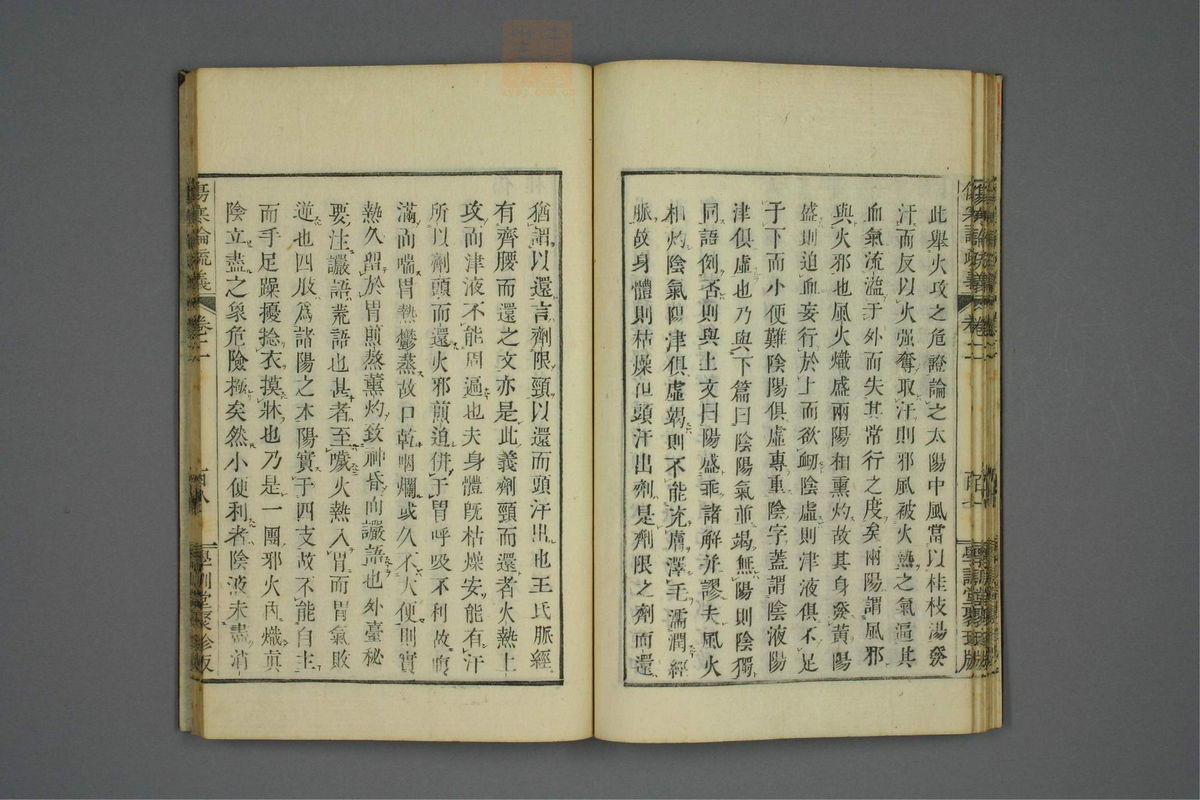 此舉火攻之危證論之太陽中風當以桂枝湯發
汗而反以火强奪取汗則邪風被火熱之氣逼其
血氣流溢于外而失其常行之度矣兩陽謂風邪
與火邪也風火熾盛兩陽相熏灼故其身發黃陽
盛則迫血妄行於上而欲衂陰虛則津液俱不足
于下而小便難陰陽俱虛專重陰字蓋謂陰液陽
津俱虛也乃與下篇曰陰陽氣並竭無陽則陰獨
同語例否則與上文曰陽盛乖諸解并謬夫風火
相灼陰氣陽津俱虛竭則不能充膚澤毛濡潤經
脈故身體則枯燥但頭汗出劑是劑限之劑而還
傷寒論疏義
卷二
學訓堂聚珍版
猶謂以還言劑限頸以還而頭汗出也王氏脈經
有齊腰而還之文亦是此義劑頸而還者火熱上
攻而津液不能周遍也夫身體既枯燥安能有汗
所以劑頭而還火邪煎迫併于胃呼吸不利故腹
滿而喘胃熱鬱蒸故口乾咽爛或久不大便則實
熱久留於胃煎熬薰灼致神昏而讝語也外臺秘
要注讝語荒語也甚者至噦火熱入胃而胃氣敗
逆也四肢爲諸陽之本陽實于四支故不能自主
而手足躁擾捻衣摸牀也乃是一團邪火內熾眞
陰立盡之象危險極矣然小便利者陰液未盡消
傷寒論疏義
卷二
學訓堂聚珍版